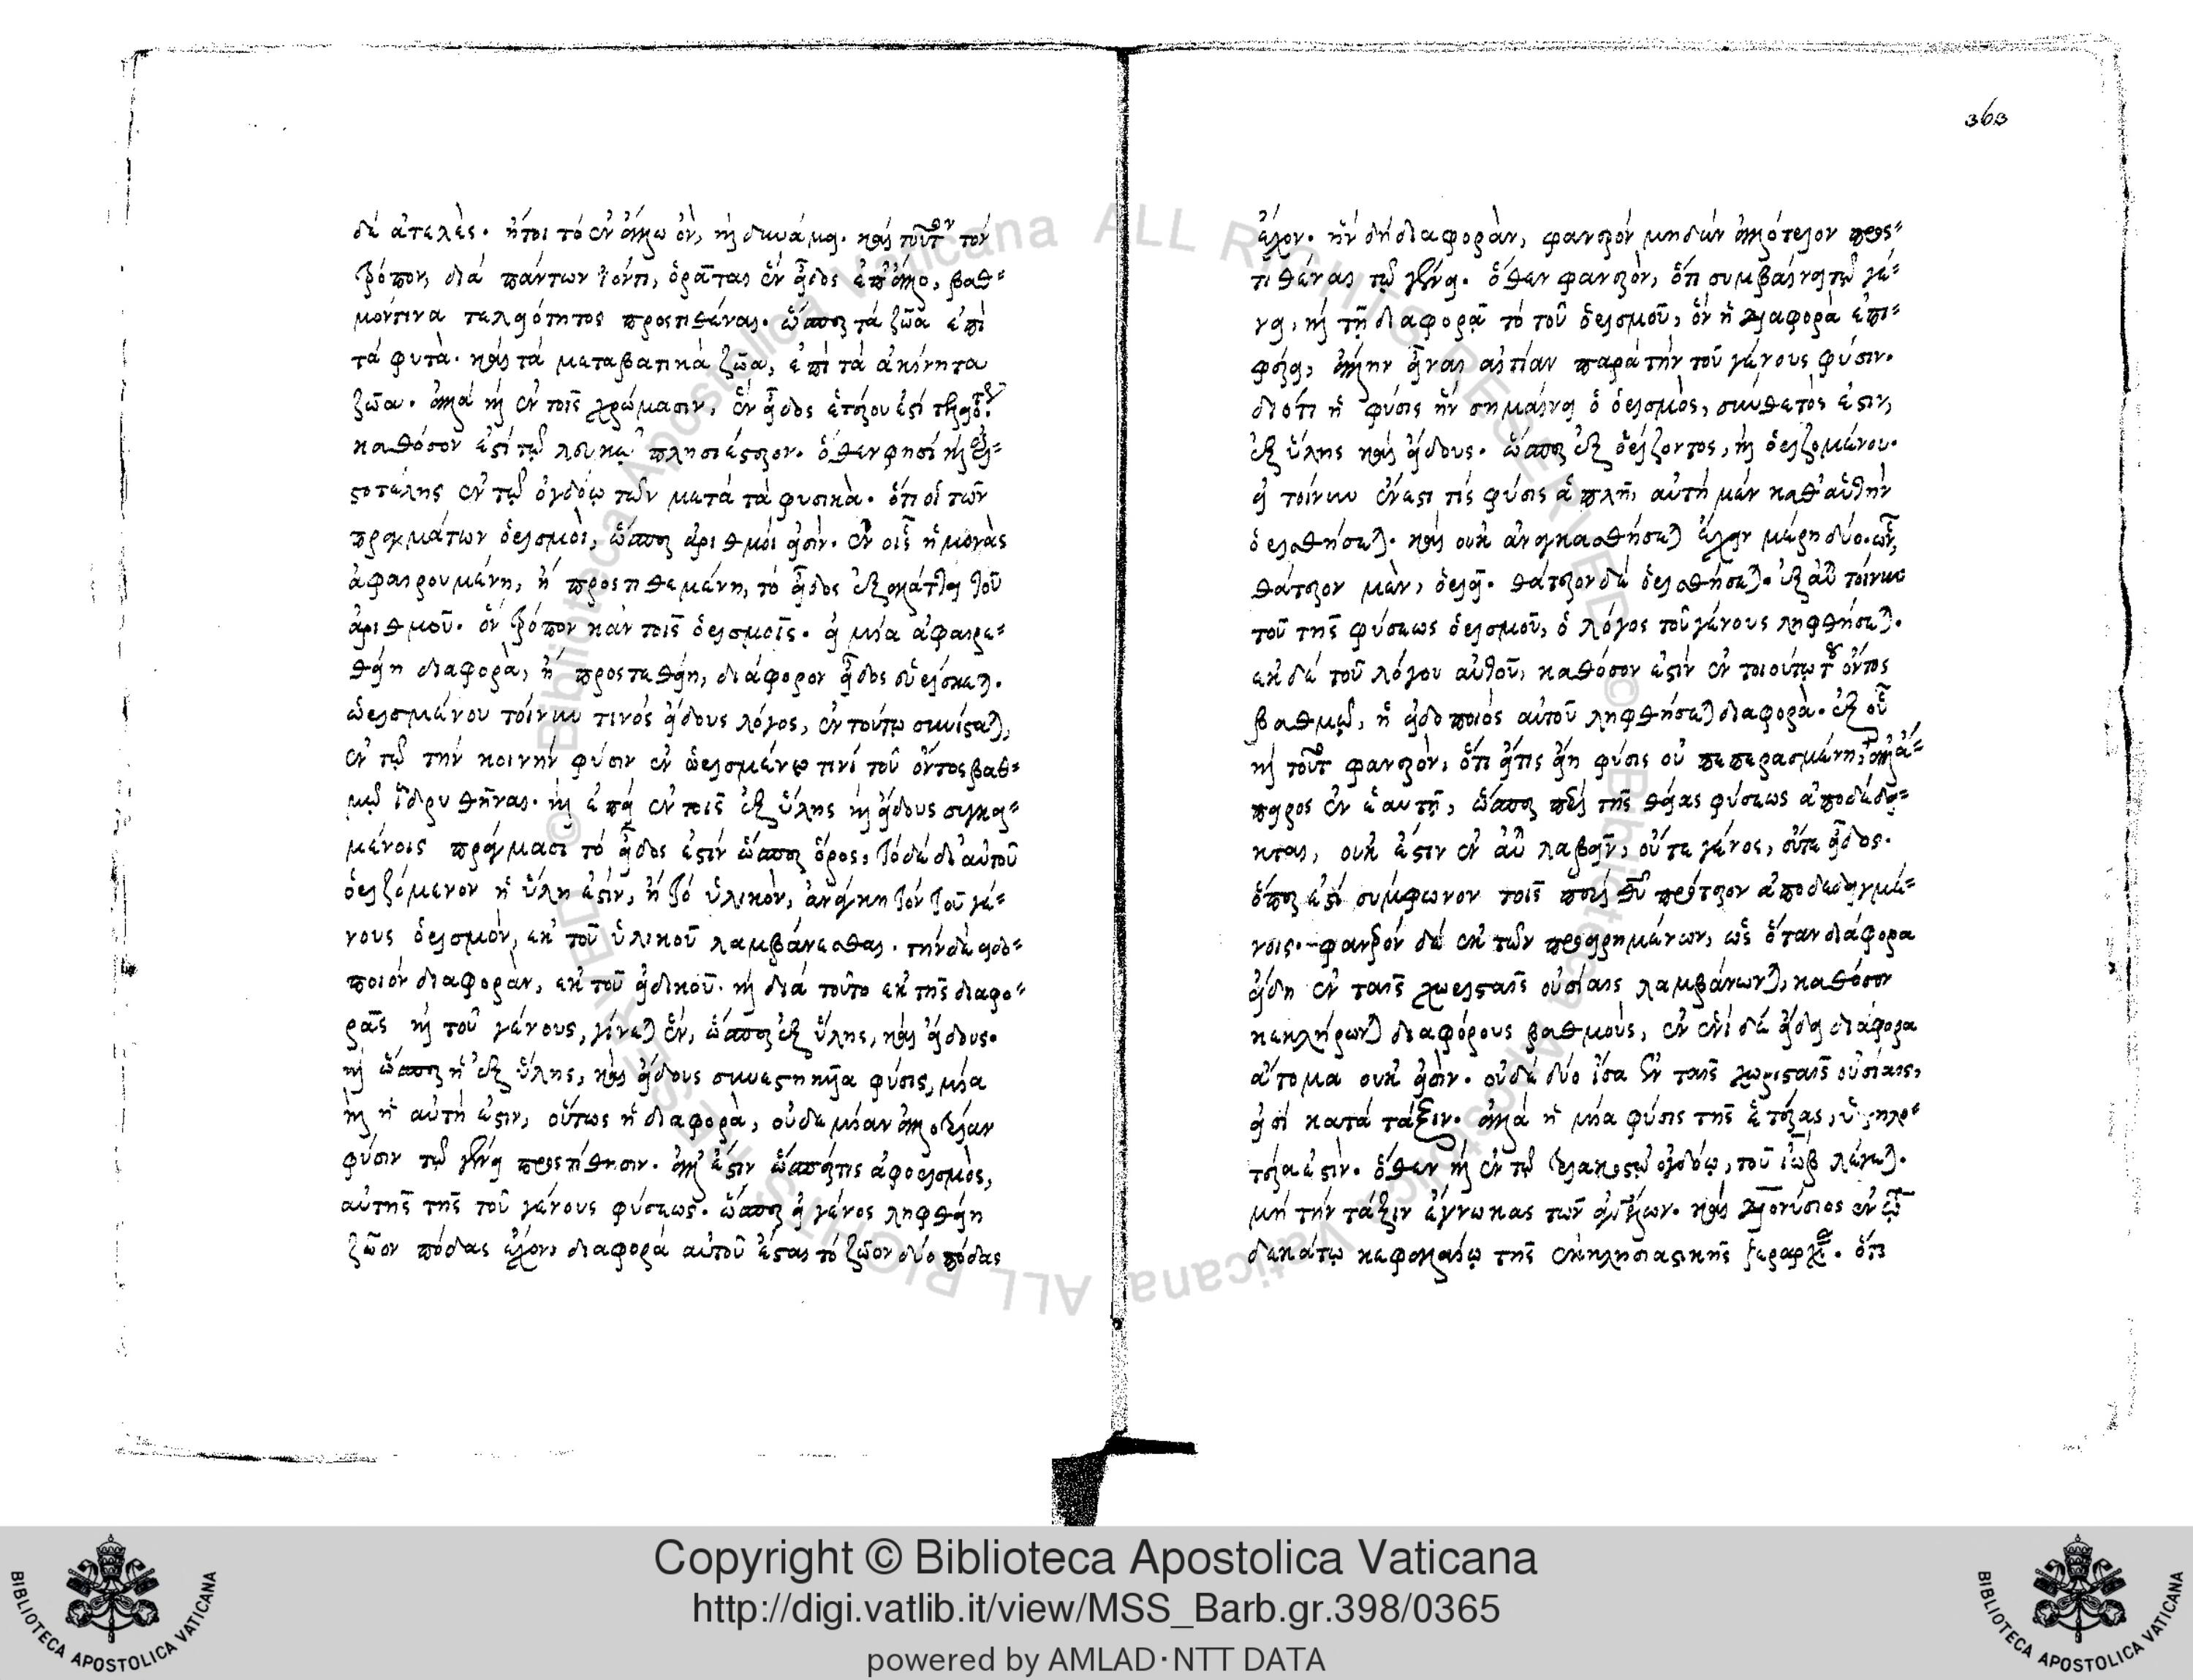 δὲ ἀτελές. ἤτοι τὸ ἐν ἄλλω ὂν, καὶ δυνάμει. καὶ τοῦτον τὸν
τρόπον, διὰ πάντων ἰόντι, ὁρᾶται ἓν εἶδος ἐπ' ἄλλο, βαθ=
μόν τινα τελειότητος προστιθέναι. ὥσπερ τὰ ζῶα ἐπὶ
τὰ φυτὰ. καὶ τὰ μεταβατικὰ ζῶα, ἐπὶ τὰ ἀκίνητα
ζῶα. ἀλλὰ καὶ ἐν τοῖς χρώμασιν, ἓν εἶδος ἑτέρου ἐστὶ
καθόσον ἐστὶ τῷ λευκῷ πλησιέστερον. ὅθεν φησὶ καὶ ἀρι=
στοτέλης ἐν τῷ ὀγδόῳ τῶν μετὰ τὰ φυσικὰ. ὅτι οἱ τῶν
πραγμάτων ὁρισμοὶ, ὥσπερ ἀριθμοί εἰσὶν. ἐν οἷς ἡ μονὰς
ἀφαιρουμένη, ἢ προστιθεμένη, τὸ εἶδος ἐξαλάττει τοῦ
ἀριθμοῦ. ὃν τρόπον κἀν τοῖς ὁρισμοῖς. εἰ μία ἀφαιρε=
θείη διαφορὰ, ἢ προστεθείη, διάφορον εἶδος εὑρίσκεται.
ὡρισμένου τοίνυν τινὸς εἴδους λόγος, ἐν τούτῳ συνίσταται,
ἐν τῷ τὴν κοινὴν φύσιν ἐν ὡρισμένῳ τινὶ τοῦ ὄντος βαθ=
μῷ ἱδρυθῆναι. καὶ ἐπεὶ ἐν τοῖς ἐξ ὕλης καὶ εἴδους συγκει=
μένοις πράγμασι τὸ εἶδος ἐστὶν ὥσπερ ὅρος, τὸ δὲ δι' αὐτοῦ
ὁριζόμενον ἡ ὕλη ἐστὶν, ἢ τὸ ὑλικὸν, ἀνάγκη τὸν τοῦ γέ=
νους ὁρισμὸν, ἐκ τοῦ ὑλικοῦ λαμβάνεσθαι. τὴν δὲ εἰδο=
ποιὸν διαφορὰν, ἐκ τοῦ εἰδικοῦ. καὶ διὰ τοῦτο ἐκ τῆς διαφο=
ρᾶς καὶ τοῦ γένους, γίνεται ἓν, ὥσπερ ἐξ ὕλης, καὶ εἴδους.
καὶ ὥσπερ ἡ ἐξ ὕλης, καὶ εἴδους συνεστηκυῖα φύσις, μία
καὶ ἡ αὐτή ἐστιν, οὕτως ἡ διαφορὰ, οὐδεμίαν ἀλλοτρίαν
φύσιν τῷ γένει προστίθησιν. ἀλλ' ἐστὶν ὥσπέρ τις ἀφορισμὸς,
αὐτῆς τῆς τοῦ γένους φύσεως. ὥσπερ εἰ γένος ληφθείη
ζῶον πόδας ἔχον, διαφορὰ αὐτοῦ ἔσται τὸ ζῶον δύο πόδας
363
ἔχον. ἣν δὴ διαφορὰν, φανερὸν μηδὲν ἀλλότριον προσ=
τιθέναι τῷ γένει. ὅθεν φανερὸν, ὅτι συμβαίνει τῷ γέ=
νει, καὶ τῇ διαφορᾷ τὸ τοῦ ὁρισμοῦ, ὃν ἡ διαφορὰ ἐπι=
φέρει, ἄλλην εἶναι αἰτίαν παρὰ τὴν τοῦ γένους φύσιν.
διότι ἡ φύσις ἣν σημαίνει ὁ ὁρισμὸς, σύνθετός ἐστιν,
ἐξ ὕλης καὶ εἴδους. ὥσπερ ἐξ ὁρίζοντος, καὶ ὁριζομένου.
εἰ τοίνυν ἔνεστι τὶς φύσις ἁπλῆ, αὐτὴ μὲν καθ' αὑτὴν
ὁρισθήσεται. καὶ οὐκ ἀναγκασθήσεται ἔχειν μέρη δύο. ὧν,
θάτερον μὲν, ὁριεῖ. θάτερον δὲ ὁρισθήσεται. ἐξ αὐτοῦ τοίνυν
τοῦ τῆς φύσεως ὁρισμοῦ, ὁ λόγος τοῦ γένους ληφθήσεται.
ἐκ δὲ τοῦ λόγου αὐτοῦ, καθόσον ἐστὶν ἐν τοιούτῳ τοῦ ὄντος
βαθμῷ, ἡ εἰδοποιὸς αὐτοῦ ληφθήσεται διαφορὰ. ἐξ οὗ
καὶ τοῦτο φανερὸν, ὅτι εἴτις εἴη φύσις οὐ πεπερασμένη, ἀλλ' ἄ=
πειρος ἐν ἑαυτῇ, ὥσπερ περὶ τῆς θείας φύσεως ἀποδέδει=
κται, οὐκ ἔστιν ἐν αὐτῇ λαβεῖν, οὔτε γένος, οὔτε εἶδος.
ὅπερ ἐστὶ σύμφωνον τοῖς περὶ θεοῦ πρότερον ἀποδεδειγμέ=
νοις. φανερὸν δὲ ἐκ τῶν προειρημένων, ὡς ὅταν διάφορα
εἴδη ἐν ταῖς χωρισταῖς οὐσίαις λαμβάνωνται, καθόσον
κεκλήρωνται διαφόρους βαθμοὺς, ἐν ἑνὶ δὲ εἴδει διάφορα
ἄτομα οὐκ εἰσὶν. οὐδὲ δύο ἴσα ἐν ταῖς χωρισταῖς οὐσίαις,
εἰσὶ κατὰ τάξιν. ἀλλὰ ἡ μία φύσις τῆς ἑτέρας, ὑψηλο=
τέρα ἐστὶν. ὅθεν καὶ ἐν τῷ τριακοστῷ ὀγδόῳ, τοῦ ἰὼβ λέγεται.
μὴ τὴν τάξιν ἔγνωκας τῶν ἀγγέλων. καὶ διονύσιος ἐν τῷ
δεκάτῳ κεφαλαίῳ τῆς ἐκκλησιαστικῆς ἱεραρχίας. ὅτι
Copyright © Biblioteca Apostolica Vaticana
http://digi.vatlib.it/view/MSS_Barb.gr.398/0365
powered by AMLAD·NTT DATA
BIBLIOTECA APOSTOLICA VATICANA
BIBLIOTECA APOSTOLICA VATICANA